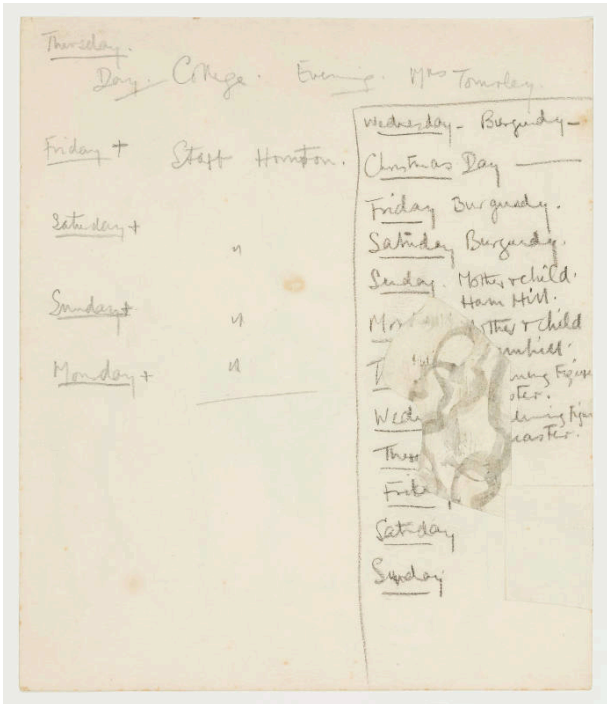 Thursday.
Day. College. Evening. Mrs
Friday + Staff Hornton.
Saturday + "
Sunday + "
Monday + "
Wednesday - Burgundy -
Christmas Day —
Friday Burgundy.
Saturday Burgundy.
Sunday. Mother & child.
Ham Hill.
Mother & child
Figure
Wed
Thurs
Saturday
Sunday